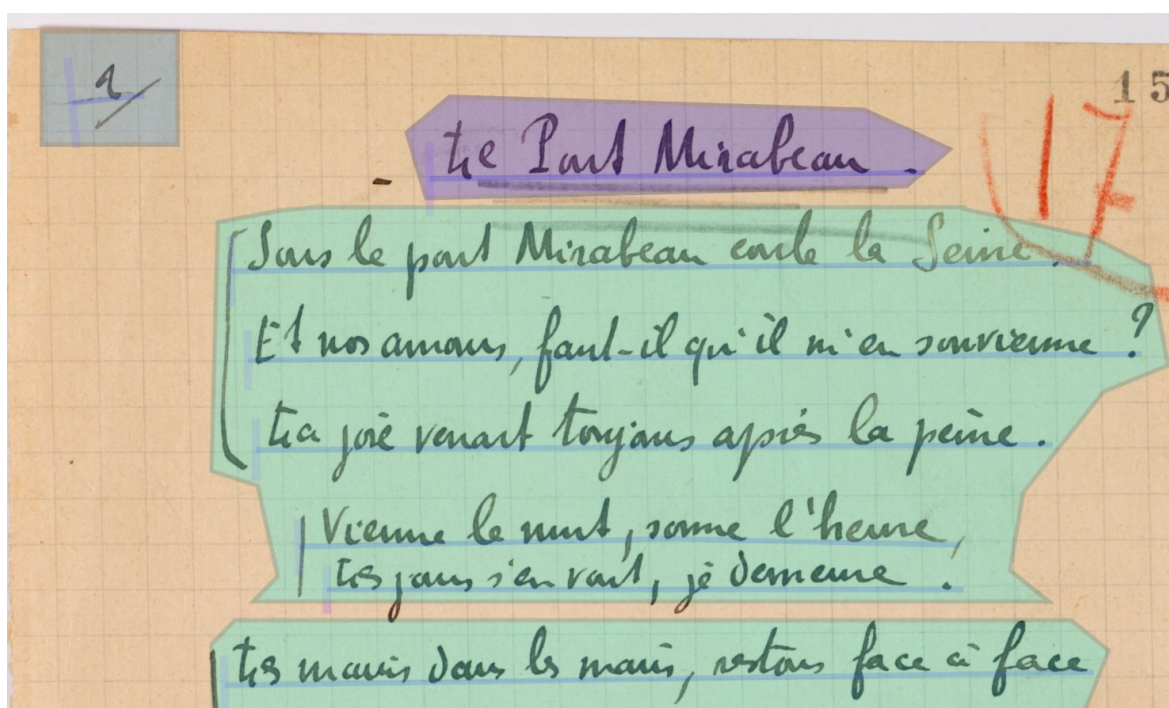 1/
15
17
- Le Pont Mirabeau -
Sous le pont Mirabeau coule la Seine.
Et nos amours, faut-il qu'il m'en souvienne ?
La joie venait toujours après la peine.
Vienne la nuit, sonne l'heure,
Les jours s'en vont, je demeure.
Les mains dans les mains, restons face à face